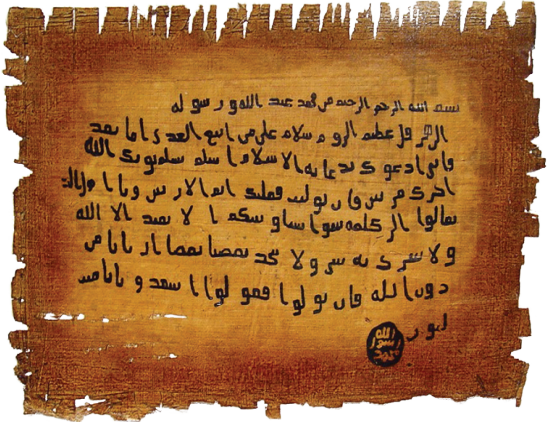 بسم الله الرحمن الرحيم من محمد عبد الله و رسوله
الى هرقل عظيم الروم سلام على من اتبع الهدى اما بعد
فاني ادعوك بدعاية الاسلام اسلم تسلم يوتك الله
اجرك مرتين فان توليت فعليك اثم الاريسين ويا اهل الكتاب
تعالوا الى كلمة سوا بيننا وبينكم الا نعبد الا الله
ولا نشرك به شيا ولا يتخذ بعضنا بعضا اربابا من
دون الله فان تولوا فقولوا اشهدوا بانا مس
لمون
الله
رسول
محمد